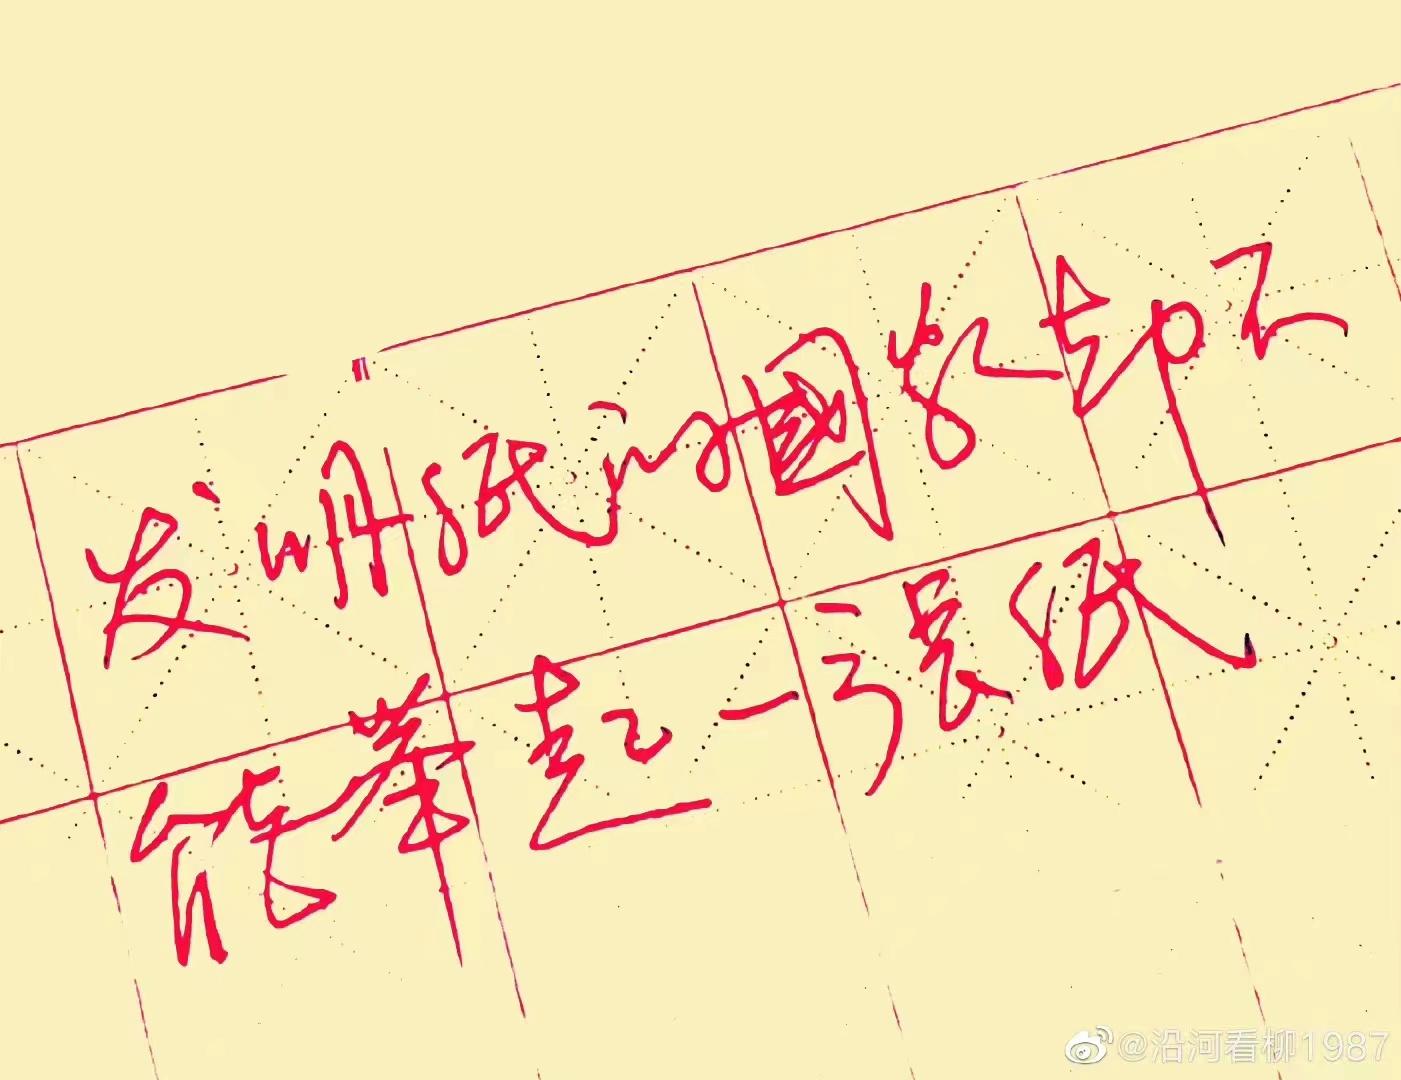 发明纸的國家却不
能举起一張纸
@沿河看柳1987